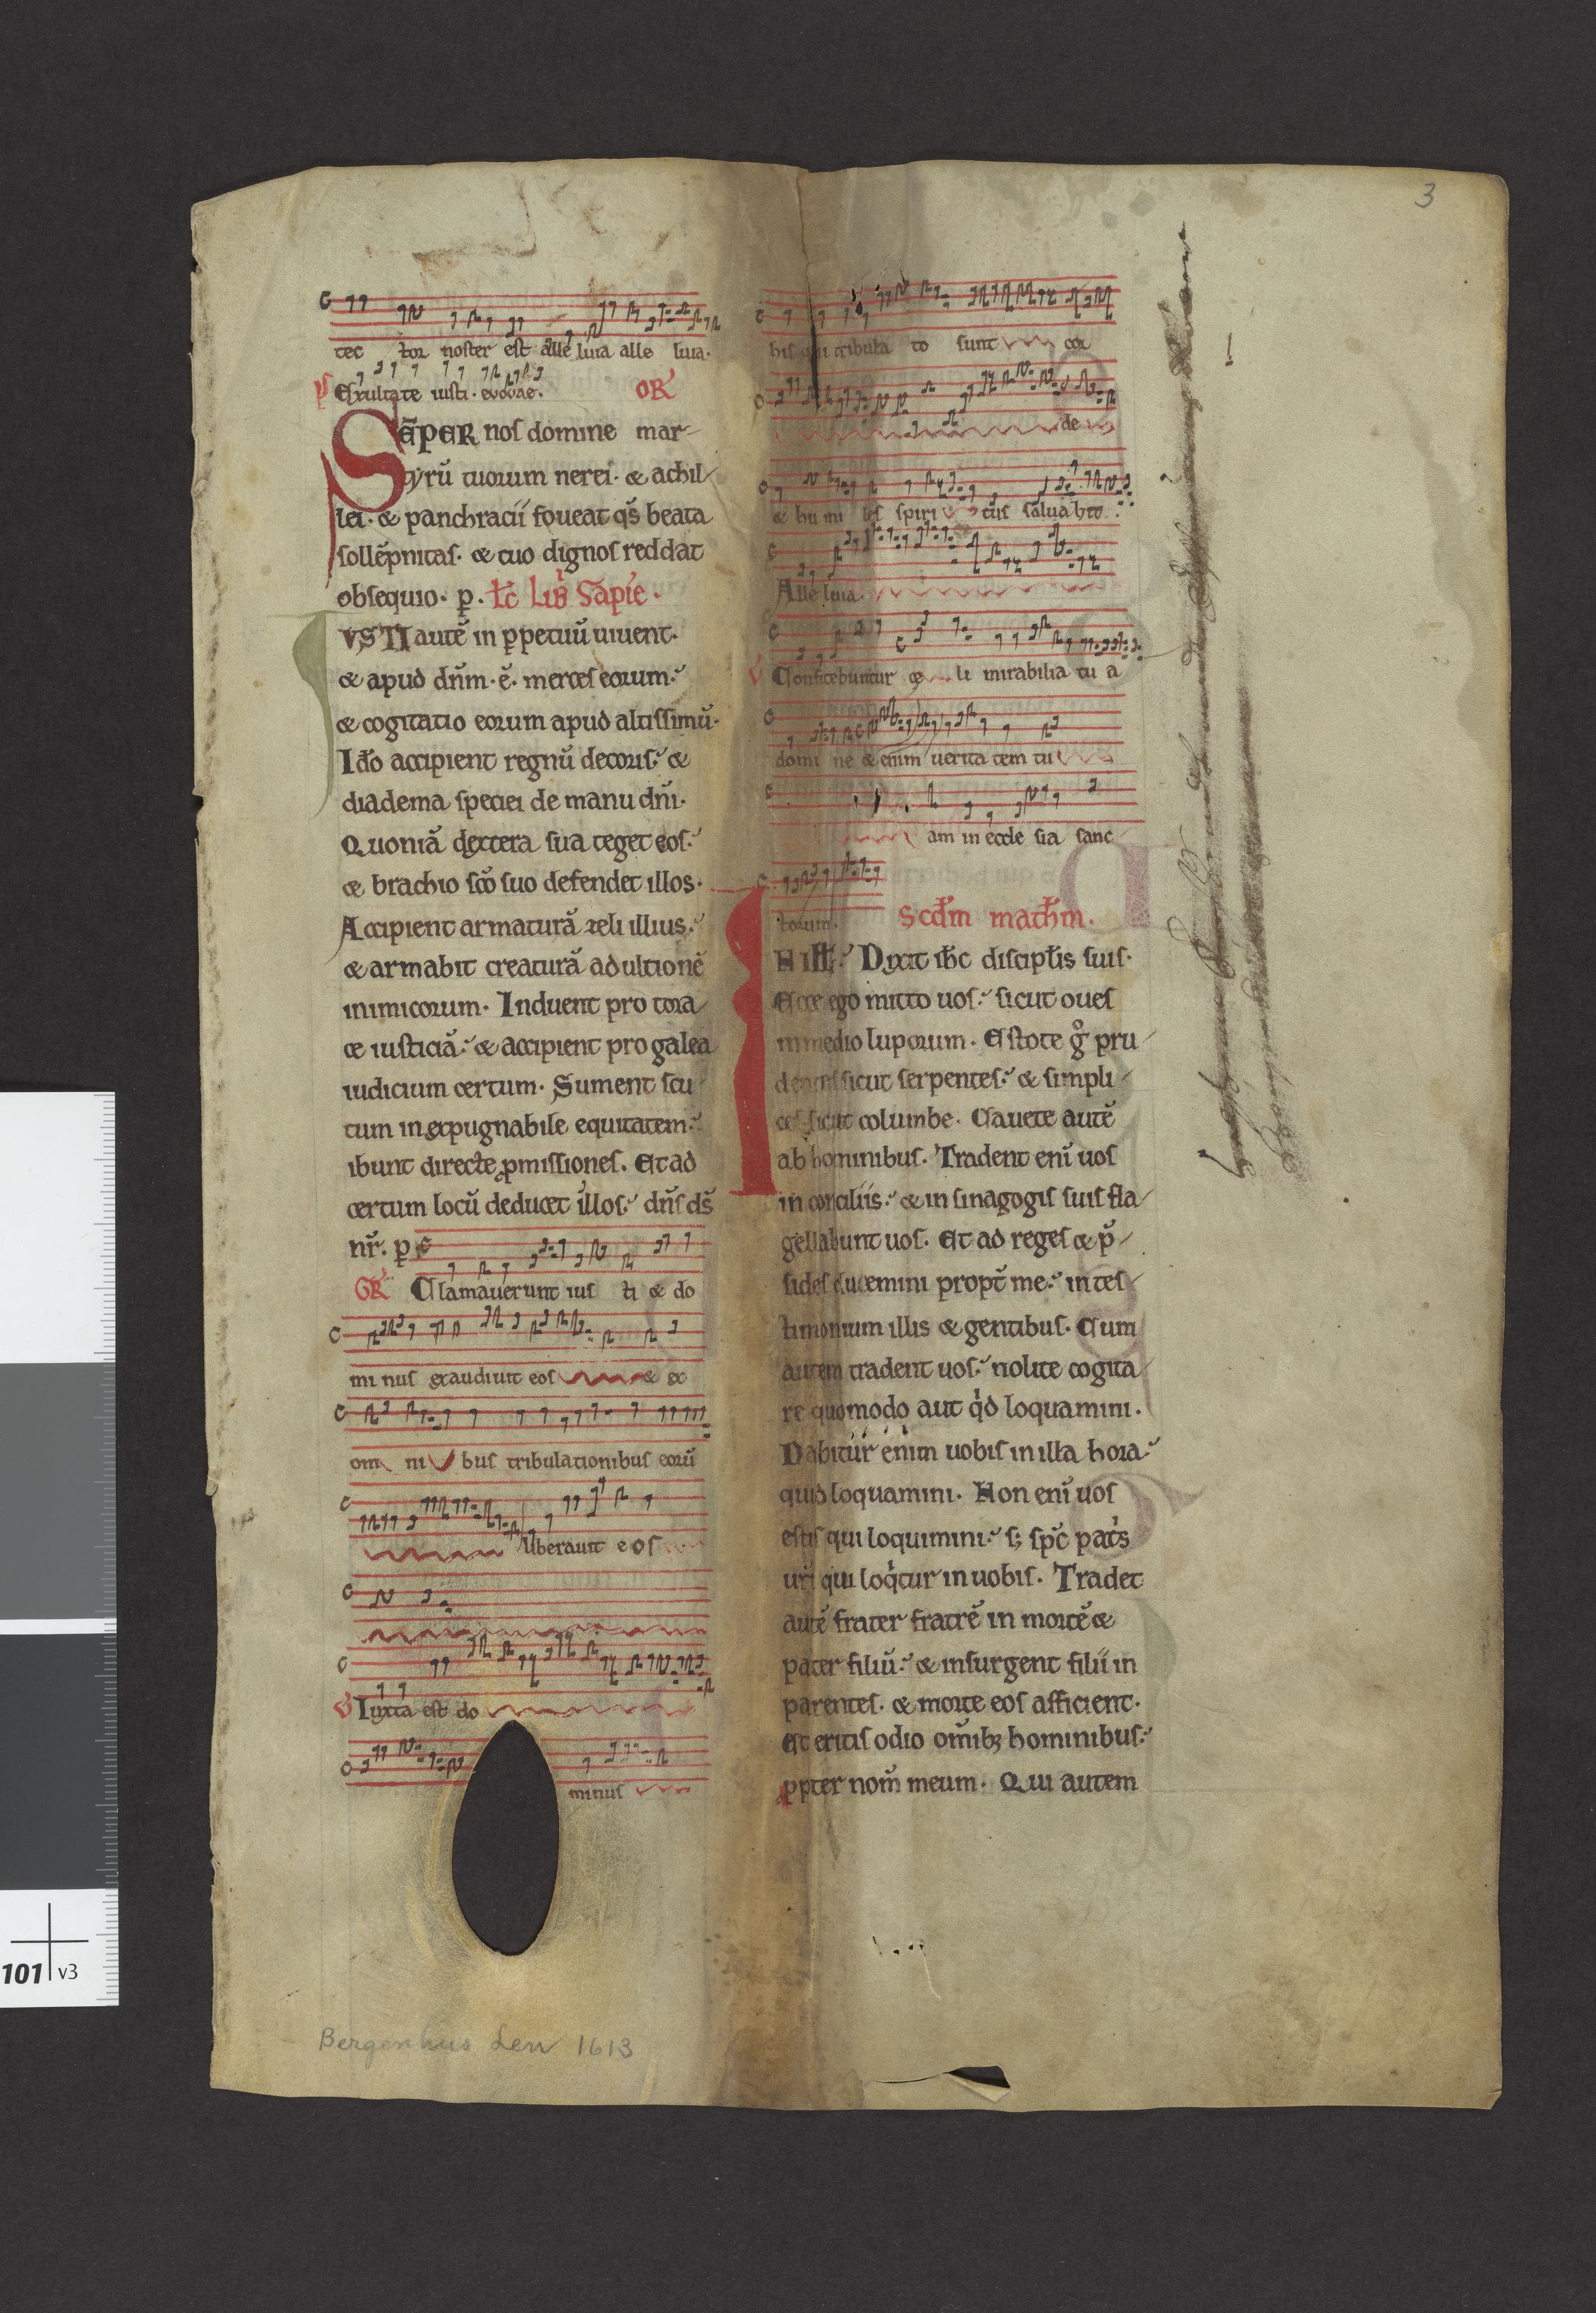 3
tec tor noster est alle luia alle luia.
Exultate iusti. euouae. OR̃
SẼPER nos domine mar-
tyrũ tuorum nerei. & achil-
lei. & panchracii foueat q̃s beata
sollẽpnitas. & tuo dignos reddat
obsequio. p. Lc̃ Lib̃ Sapie.
IVSTI autẽ in ppetuũ uiuent.
& apud dñm. ẽ. merces eorum.
& cogitatio eorum apud altissimũ.
Ido accipient regnũ decoris. &
diadema speciei de manu dñi.
Quoniã dextera sua teget eos.
& brachio sc̃o suo defendet illos.
Accipient armaturã zeli illius.
& armabit creaturã ad ultionẽ
inimicorum. Induent pro tora-
ce iusticiã. & accipient pro galea
iudicium certum. Sument scu-
tum inexpugnabile equitatem.
ibunt directe pmissiones. Et ad
certum locũ deducet illos. dñs ds̃
nr̃. p
GR̃ Clamauerunt ius ti & do
mi nus exaudiuit eos & ex
om ni bus tribulationibus eorũ
liberauit eos
V Iuxta est do
minus
his qui tribula to sunt cor
de
& humi les spiri tus saluabit
Alle luia
V Confitebuntur ce li mirabilia tu a
domi ne & enim uerita tem tu
am in eccle sia sanc
torum. Scd̃m math̃m.
IN ILL. Dixit ih̃c discipl̃is suis.
Ecce ego mitto uos. sicut oues
in medio luporum. Estote g° pru-
dentes sicut serpentes. & simpli-
ces sicut columbe. Cauete autẽ
ab hominibus. Tradent eni uos
in conciliis. & in sinagogis suis fla-
gellabunt uos. Et ad reges & p̃-
sides ducemini propt̃ me. in tes-
timonium illis & gentibus. Cum
autem tradent uos. nolite cogita-
re quomodo aut qd loquamini.
Dabitur enim uobis in illa hora.
quid loquamini. Non eni uos
estis qui loquimini. s; spc̃ pat̃s
uri qui loqtur in uobis. Tradet
autẽ frater fratrẽ in mortẽ &
pater filiũ. & insurgent filii in
parentes. & morte eos afficient.
et eritis odio om̃ib; hominibus.
ppter nom̃ meum. Qui autem
Bergenhus Len 1613